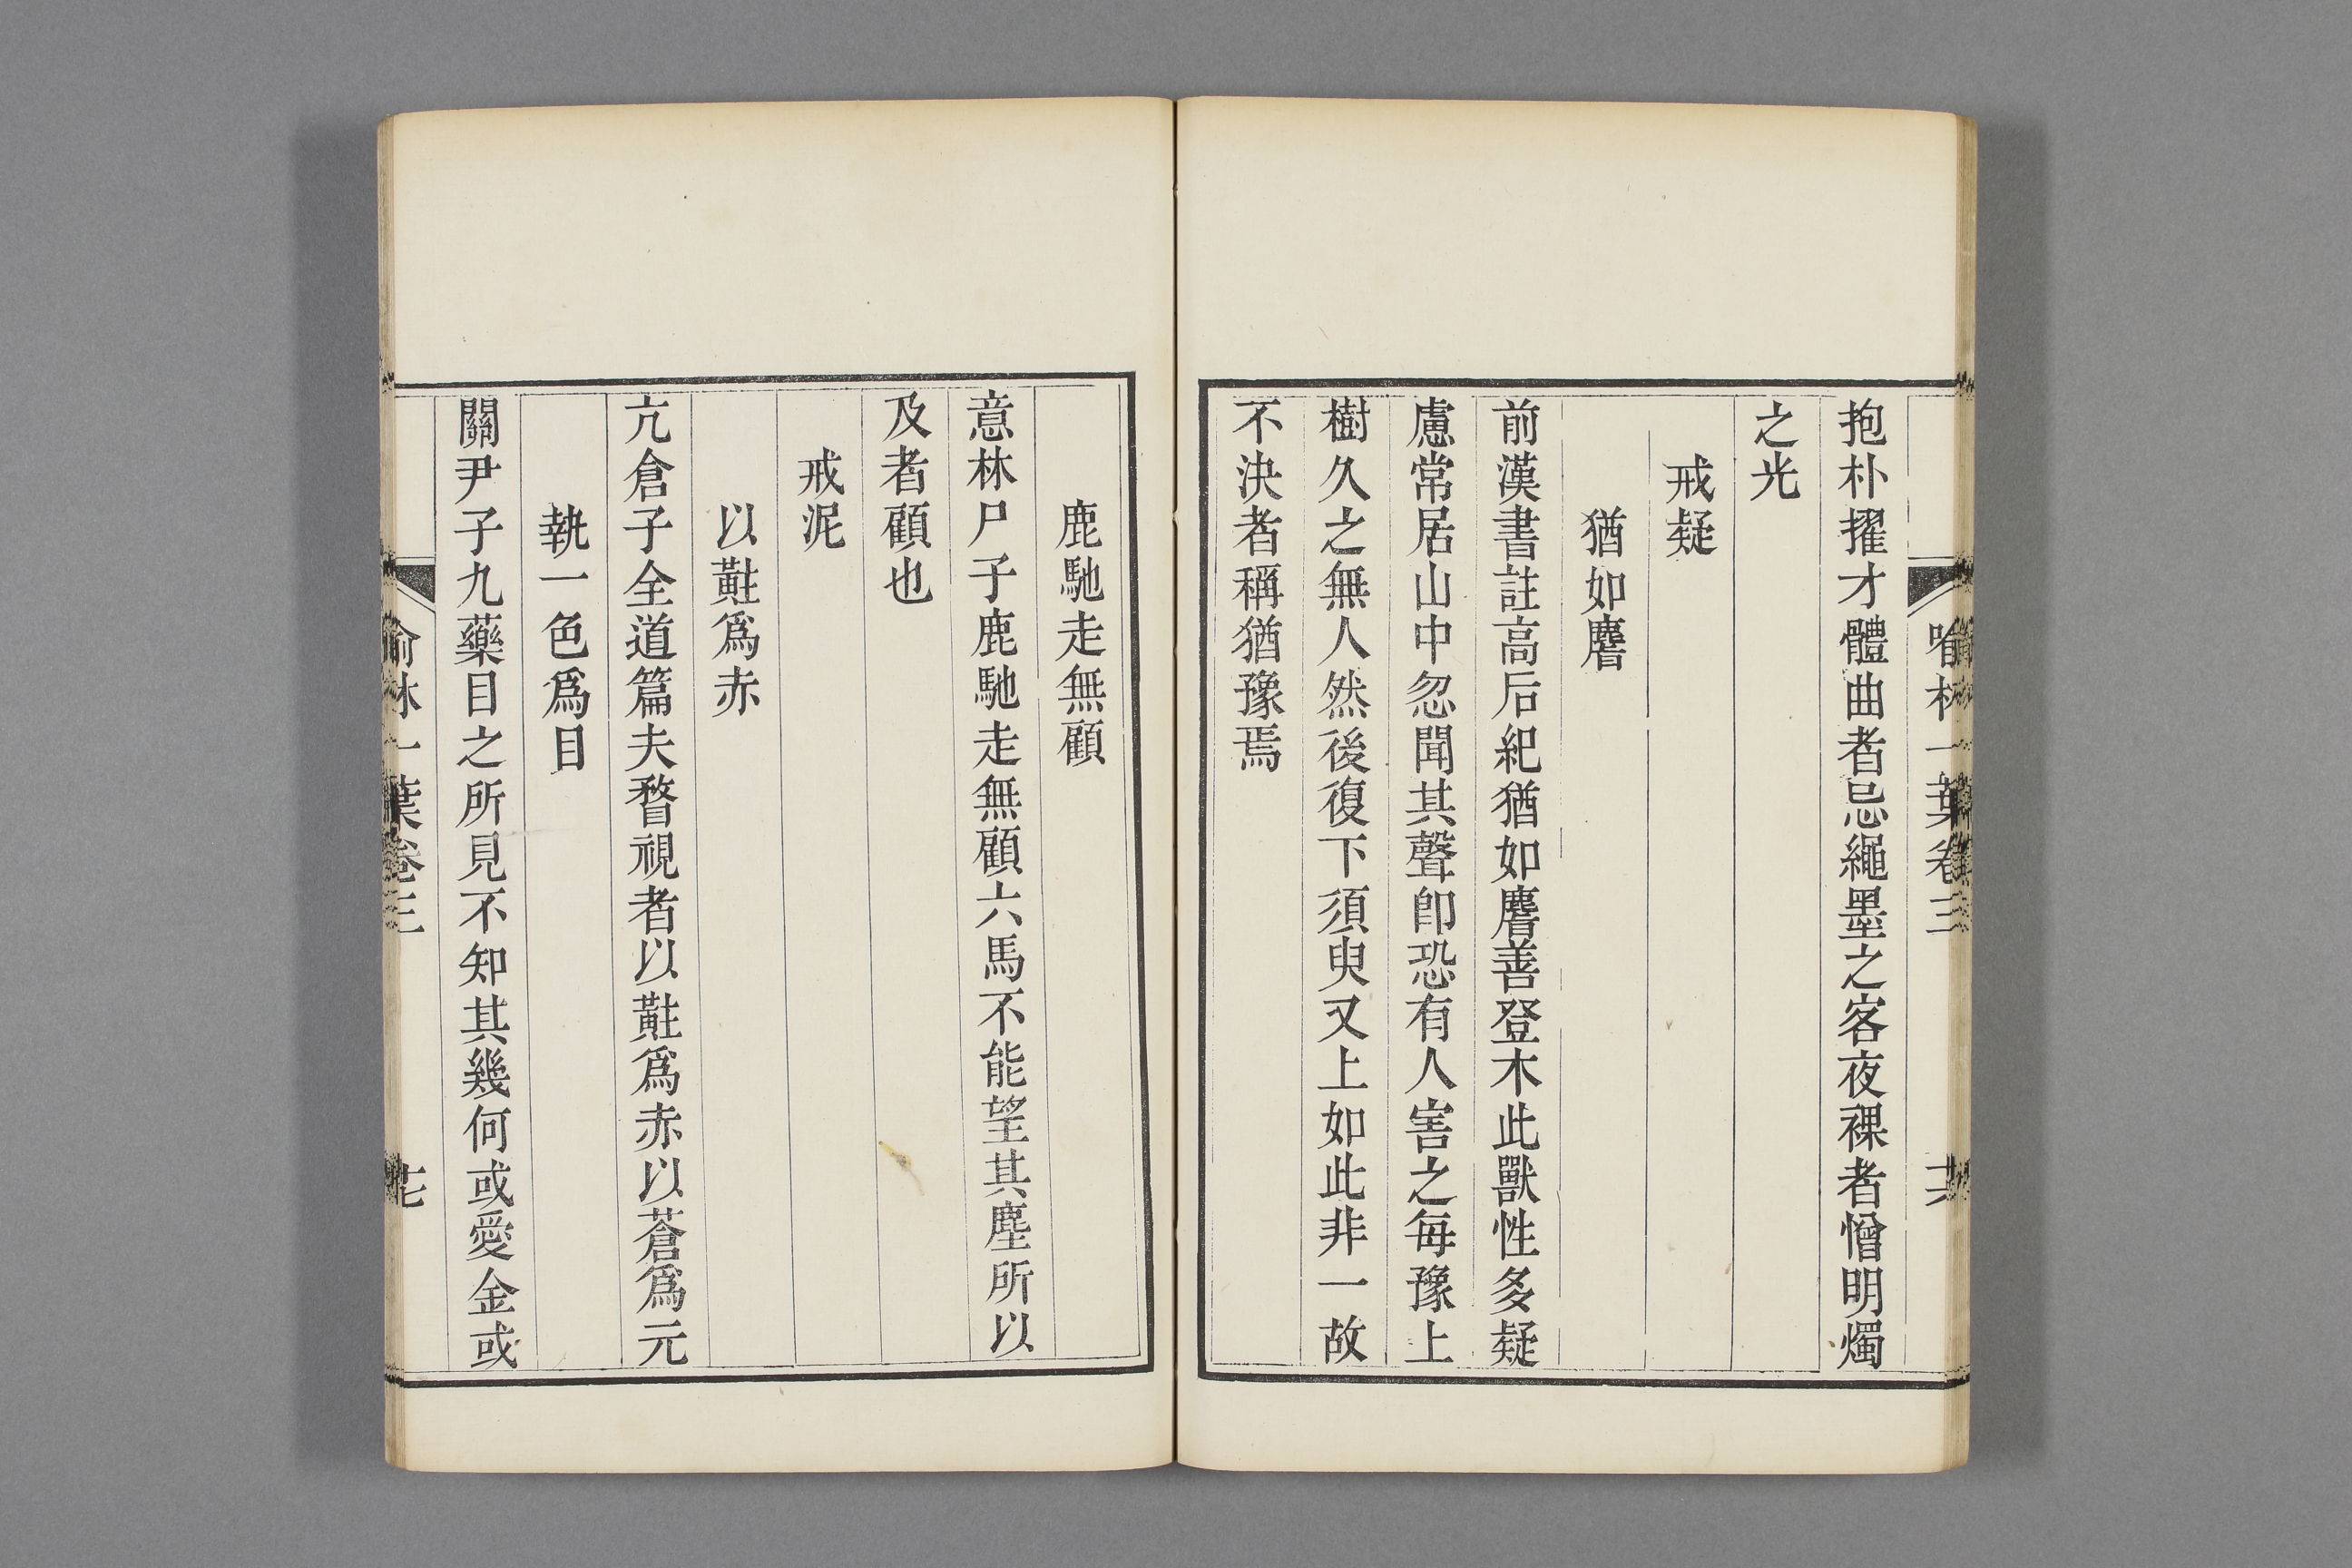 喻林一葉卷三
抱朴擢才體曲者忌繩墨之客夜裸者憎明燭
之光
戒疑
猶如麐
前漢書註高后紀猶如麐善登木此獸性多疑
慮常居山中忽聞其聲卽恐有人害之每豫上
樹久之無人然後復下須臾又上如此非一故
不決者稱猶豫焉
鹿馳走無顧
意林尸子鹿馳走無顧六馬不能望其塵所以
及者顧也
戒泥
以黈爲赤
亢倉子全道篇夫瞀視者以黈爲赤以蒼爲元
執一色爲目
關尹子九藥目之所見不知其幾何或愛金或
喻林一葉卷三